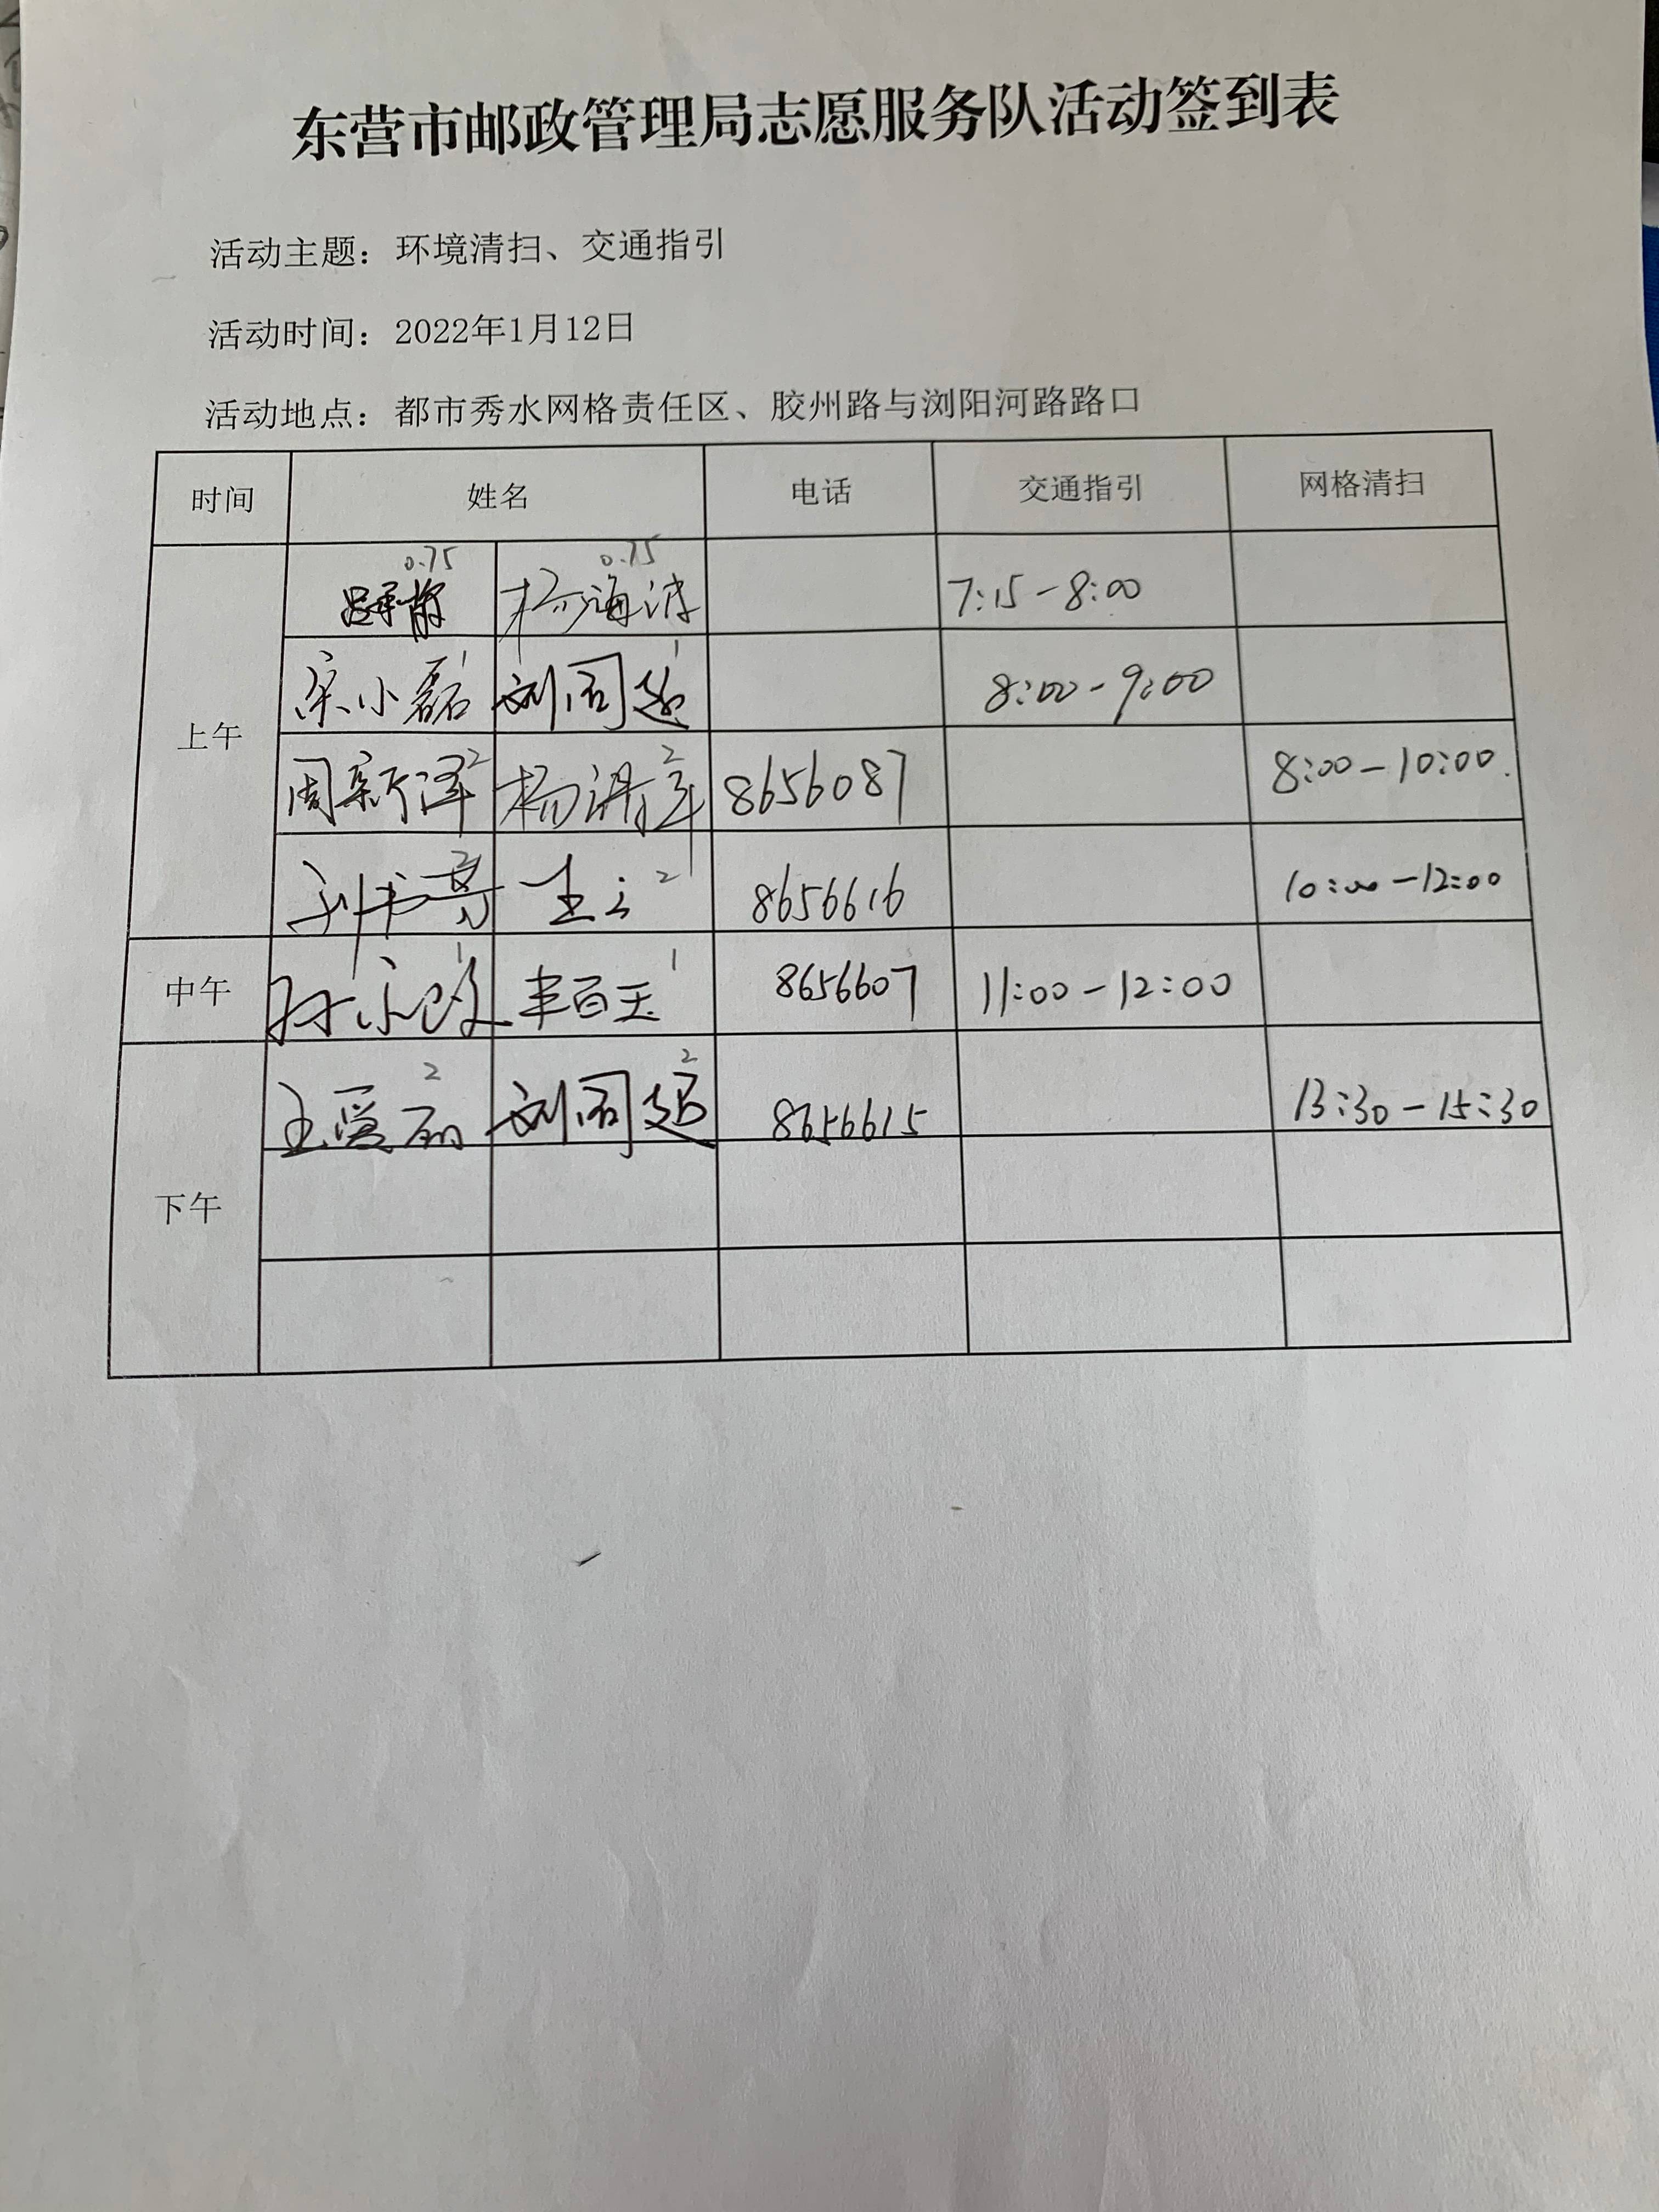 东营市邮政管理局志愿服务队活动签到表
活动主题：环境清扫、交通指引
活动时间：2022年1月12日
活动地点：都市秀水网格责任区、胶州路与浏阳河路路口
时间 姓名 电话 交通指引 网格清扫
上午
0.75 0.75
杨海波 7:15-8:00
1 1
宋小磊 刘同超 8:00-9:00
2 2
周新泽 杨 8656087 8:00-10:00
2 2
8656616 10:00-12:00
中午
1 1
丰百玉 8656607 11:00-12:00
下午
2 2
王爱丽 刘同超 8656615 13:30-15:30